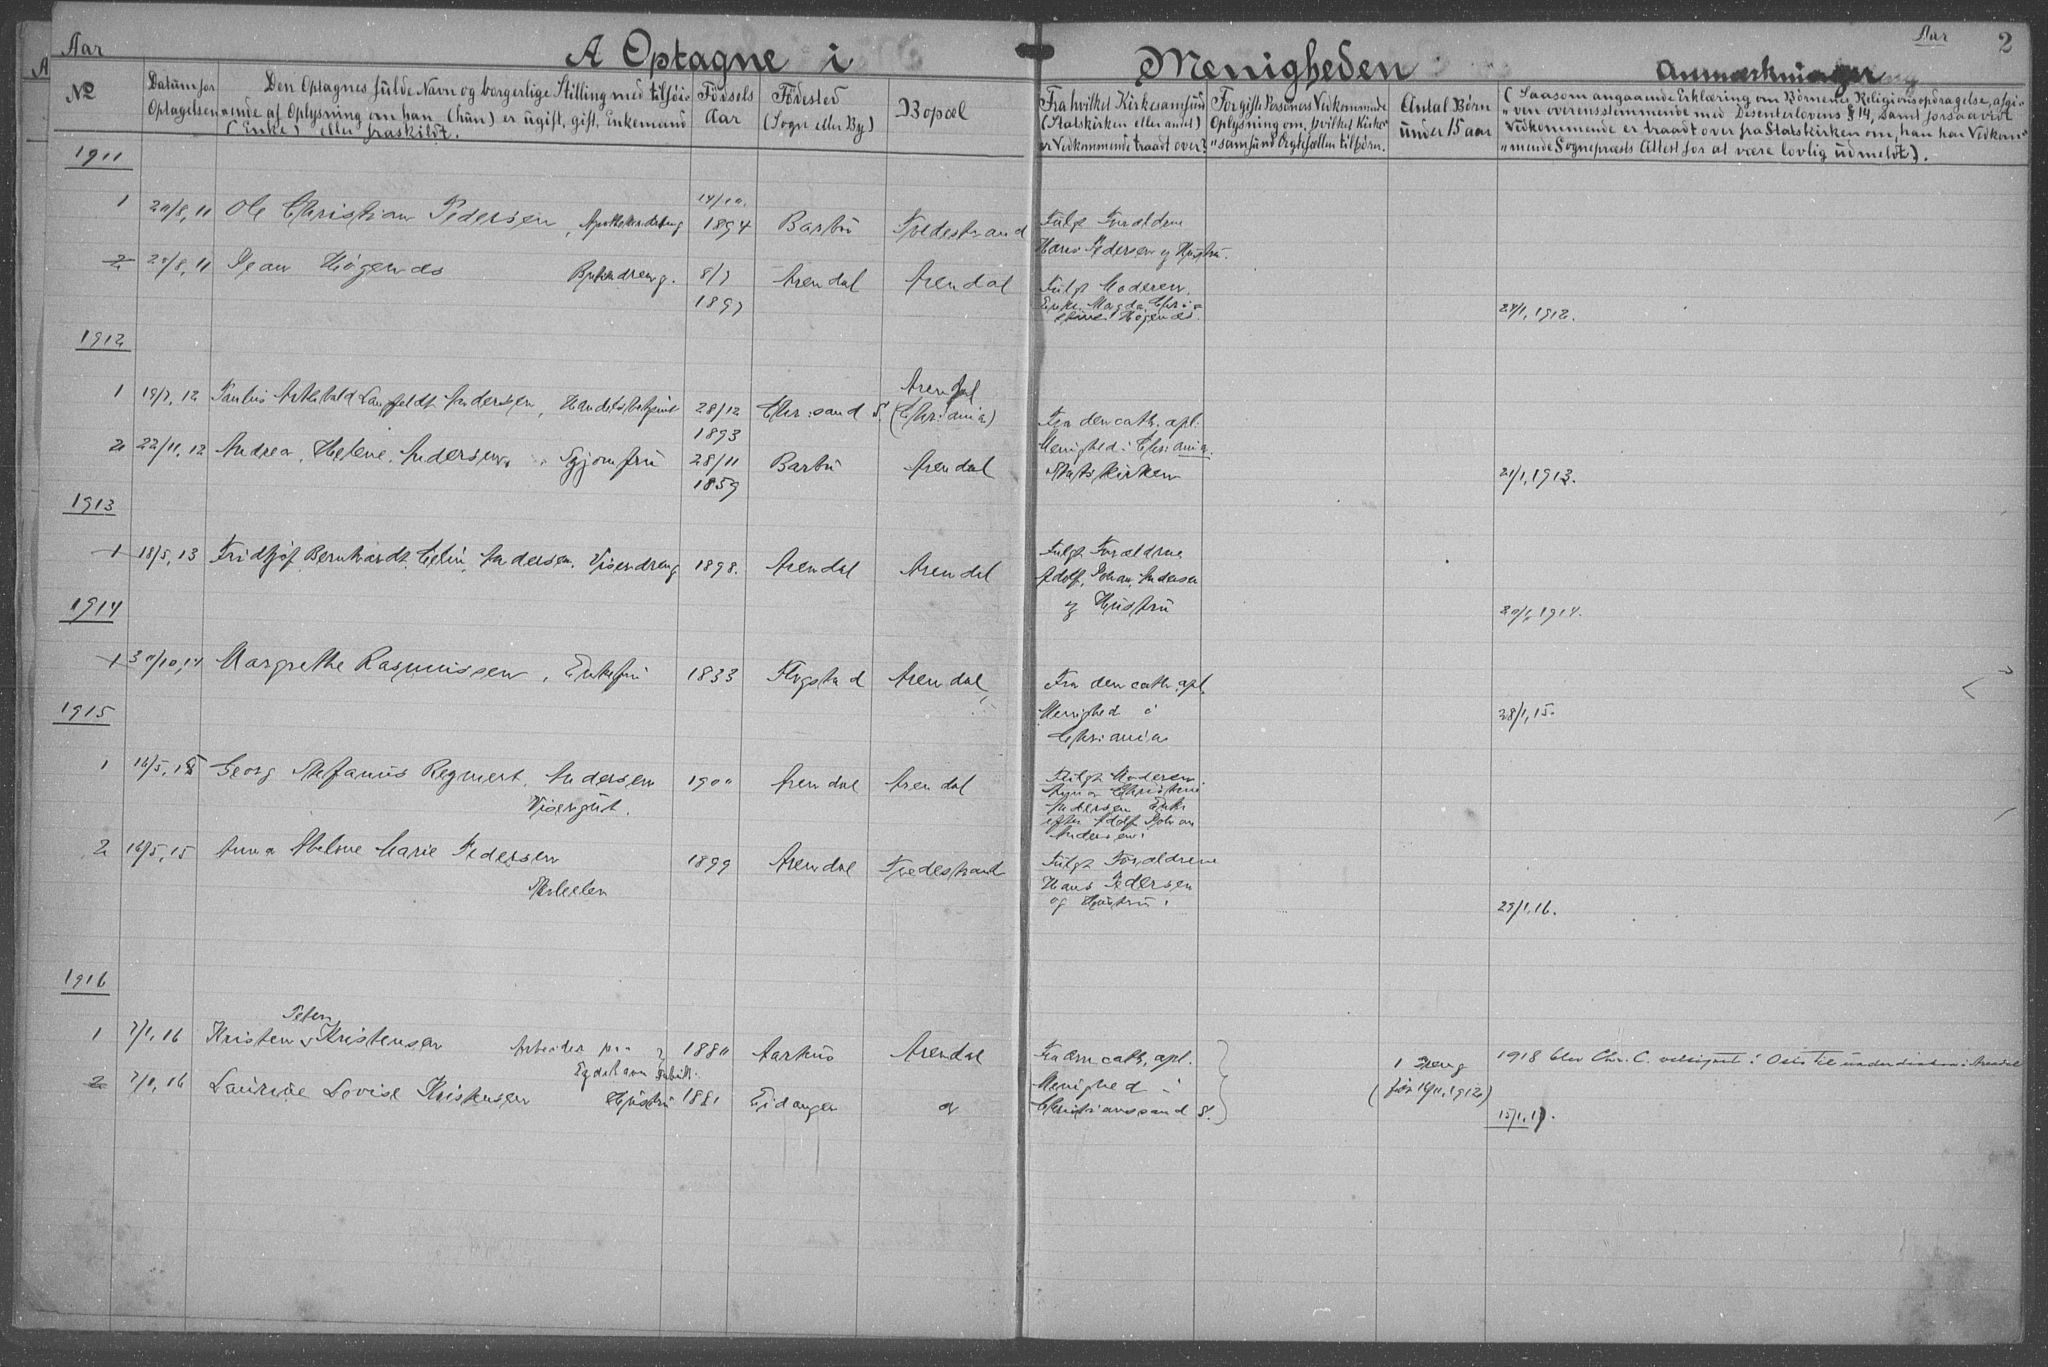 Aar
A Optagne i Menigheden
Aar 2
Anmærkninger
№
Datum for Optagelsen
Den Optagnes fulde Navn og borgerlige Stilling med tilföiende af Oplysning om han (hun) er ugift, gift, Enkemand (Enke) eller fraskildt.
Födsels Aar
Födested (Sogn eller By)
Bopæl
Fra hvilket Kirkesamfund (Statskirken eller andet) er Vedkommende traadt over?
For gifte Personers Vedkommende Oplysning om, hvilket Kirkesamfund Ægtefællen tilhörer.
Antal Börn under 15 aar
(Saasom angaaende Erklæring om Börnenes Religionsopdragelse, afgiven overensstemmende med Disenterlovens § 14, samt forsaavidt Vedkommende er traadt over fra Statskirken om, han har Vedkommende Sognepræsts Attest for at være lovlig udmeldt).
1911
1 20/8, 11 Ole Christian Pedersen, 14/10. 1894 Barbu Tvedestrand Fulgt Forældrene
Hans Pedersen og Hustru.
2 20/8, 11 Jean Högends 8/7 1897 Arendal Arendal Fulgt Moderen.
Enke Magda Christine Högends.
28/1, 1912.
1912
1 19/7, 12 Andersen, 28/12 1893 Chr.sand S. Arendal (Chr.ania) Fra den cath. apl.
Menighed i Chr.ania.
2 22/11, 12 Andrea Helene Andersen, Syjomfru 28/11 1859 Barbu Arendal Statskirken
21/1, 1913.
1913
1 18/5, 13 Fridtjof Bernhardt Andersen, Visendreng 1898. Arendal Arendal Fulgt Forældrene
Adolf Johan Andersen
og Hustru
20/1, 1914.
1914
1 30/10, 14 Margrethe Rasmussen, Enkefru 1833 Arendal Fra den cath. apl.
Menighed i
Chr.ania
28/1, 15.
1915
1 16/5, 15 Georg Stefanus Regnert Andersen 1900 Arendal Arendal Fulgt Moderen
Visergut.
Christine
Andersen Enke
efter Adolf Johan
Andersen
2 16/5, 15 Anna Abelone Marie Pedersen 1899 Arendal Tvedestrand Fulgt Forældrene
Hans Pedersen
og Hustru.
29/1, 16.
1916
Peter
1 7/1, 16 Kristen Kristensen Arbeider paa 1880 Aarhus Arendal Fra den cath. apl.
Eydehavn Fabrik.
Menighed i
1 Dreng
(før 14/11, 1912)
1918 blev Chr. C. velsignet i Oslo til underdiakon i Arendal
2 7/1, 16 Laurine Lovise Kristensen Hustru 1881 Eidanger Christianssand S.
15/1, 17.